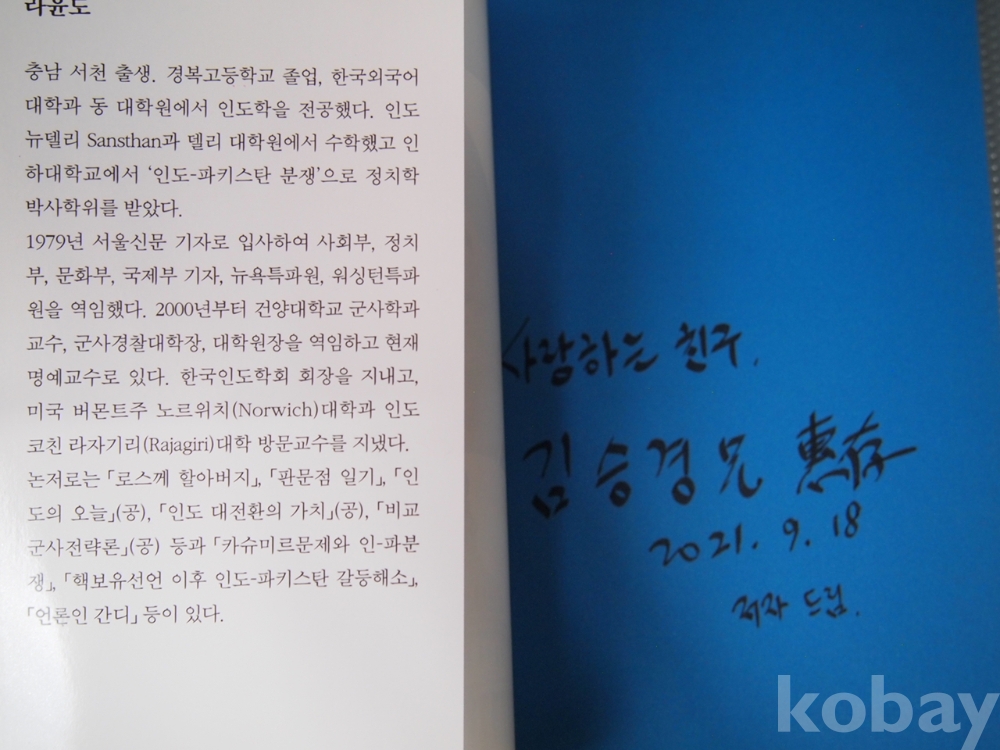 라윤도
충남 서천 출생. 경복고등학교 졸업, 한국외국어
대학과 동 대학원에서 인도학을 전공했다. 인도
뉴델리 Sansthan과 델리 대학원에서 수학했고 인
하대학교에서 ‘인도-파키스탄 분쟁’으로 정치학
박사학위를 받았다.
1979년 서울신문 기자로 입사하여 사회부, 정치
부, 문화부, 국제부 기자, 뉴욕특파원, 워싱턴특파
원을 역임했다. 2000년부터 건양대학교 군사학과
교수, 군사경찰대학장, 대학원장을 역임하고 현재
명예교수로 있다. 한국인도학회 회장을 지내고,
미국 버몬트주 노르위치(Norwich)대학과 인도
코친 라자기리(Rajagiri)대학 방문교수를 지냈다.
논저로는 「로스께 할아버지」, 「판문점 일기」, 「인
도의 오늘」(공), 「인도 대전환의 가치」(공), 「비교
군사전략론」(공) 등과 「카슈미르문제와 인-파분
쟁」, 「핵보유선언 이후 인도-파키스탄 갈등해소」,
「언론인 간디」 등이 있다.
사랑하는 친구.
김승경 兄 惠存
2021. 9. 18
저자 드림.
kobay